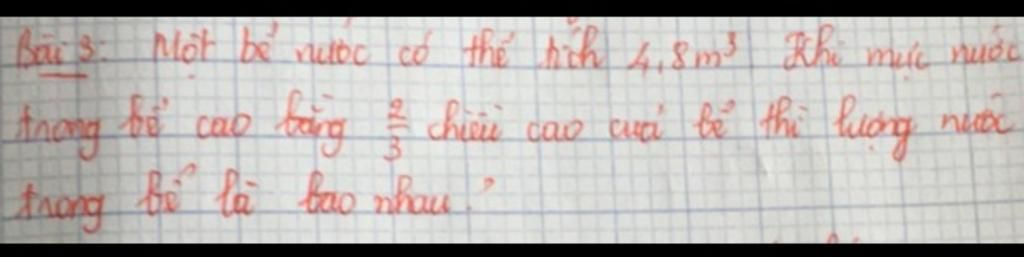 Bài 3: Một bể nước có thể tích 4,8m³ Khi mực nước
trong bể cao bằng 2/3 chiều cao cuả bể thì lượng nước
trong bể là bao nhau?